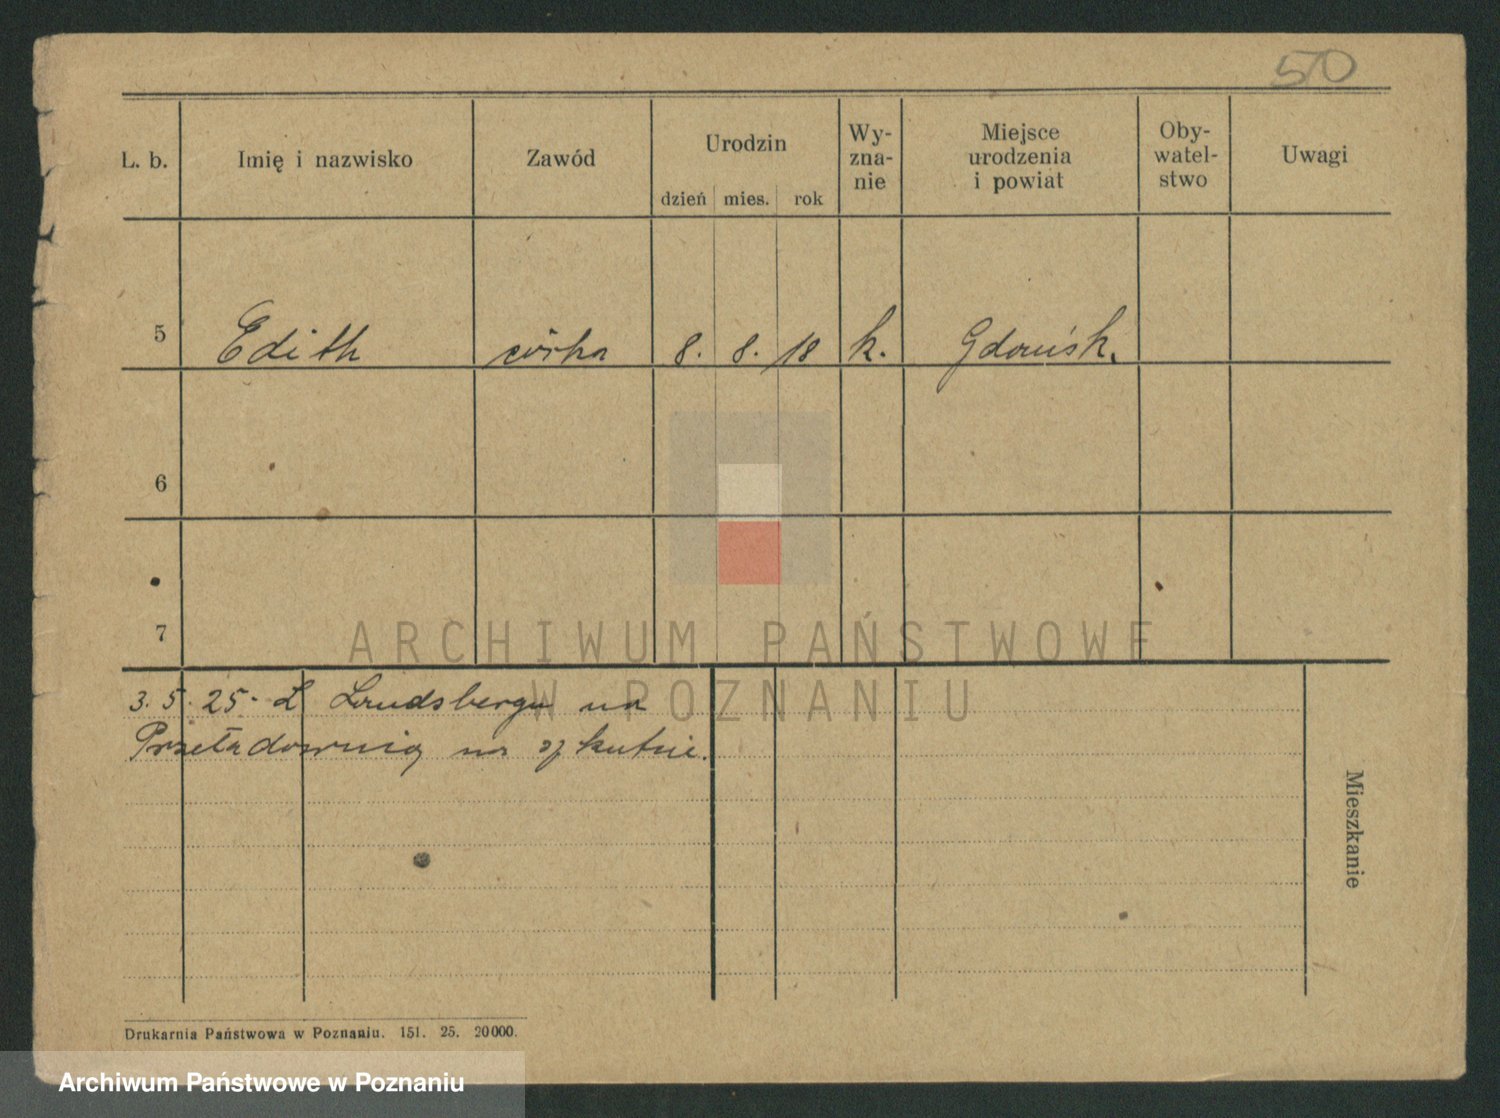 50
L. b.
Imię i nazwisko
Zawód
Urodzin
dzień mies. rok
Wy-
zna-
nie
Miejsce
urodzenia
i powiat
Oby-
watel-
stwo
Uwagi
5 Edith córka 8. 8. 18 k. Gdańsk.
6
7
3. 5. 25. Z Landsbergu na
Przeładownią na
Mieszkanie
Drukarnia Państwowa w Poznaniu. 151. 25. 20000.
ARCHIWUM PAŃSTWOWE
W POZNANIU
Archiwum Państwowe w Poznaniu